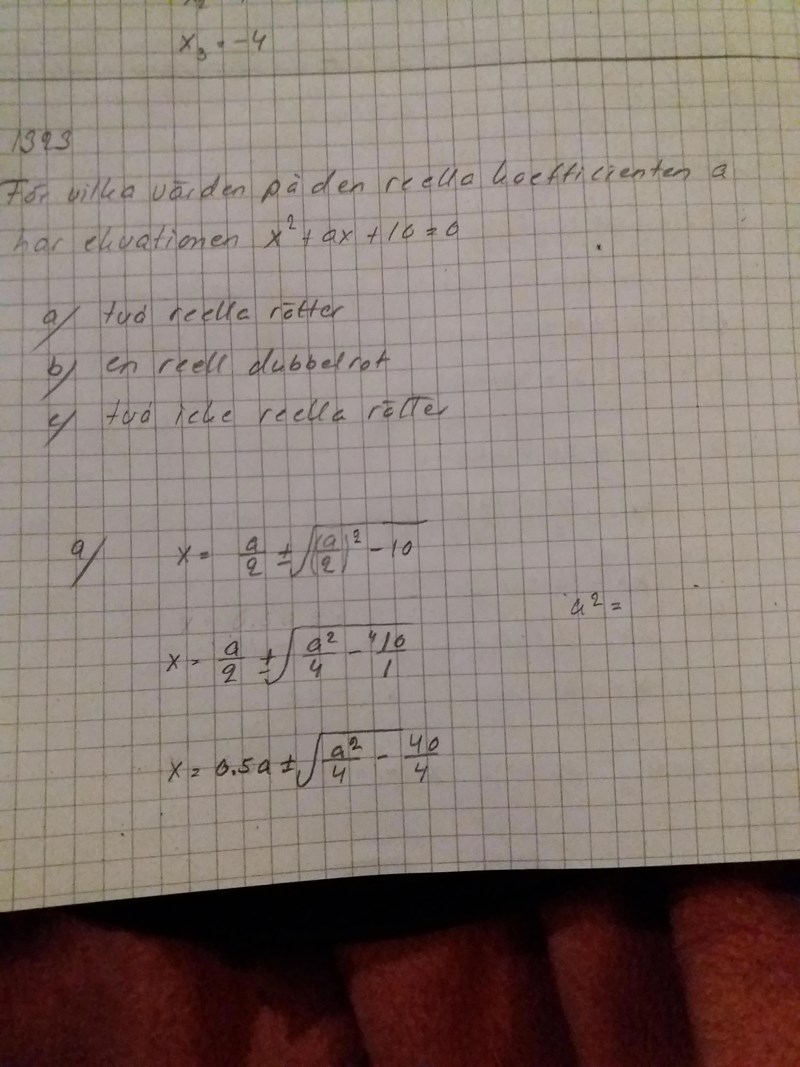 x₃ = -4
1323
För vilka värden på den reella koefficienten a
har ekvationen x² + ax + 10 = 0
a) två reella rötter
b) en reell dubbelrot
c) två icke reella rötter
a) x = a/2 ± √((a/2)² - 10)
a² =
x = a/2 ± √(a²/4 - ⁴10/1)
x = 0.5a ± √(a²/4 - 40/4)